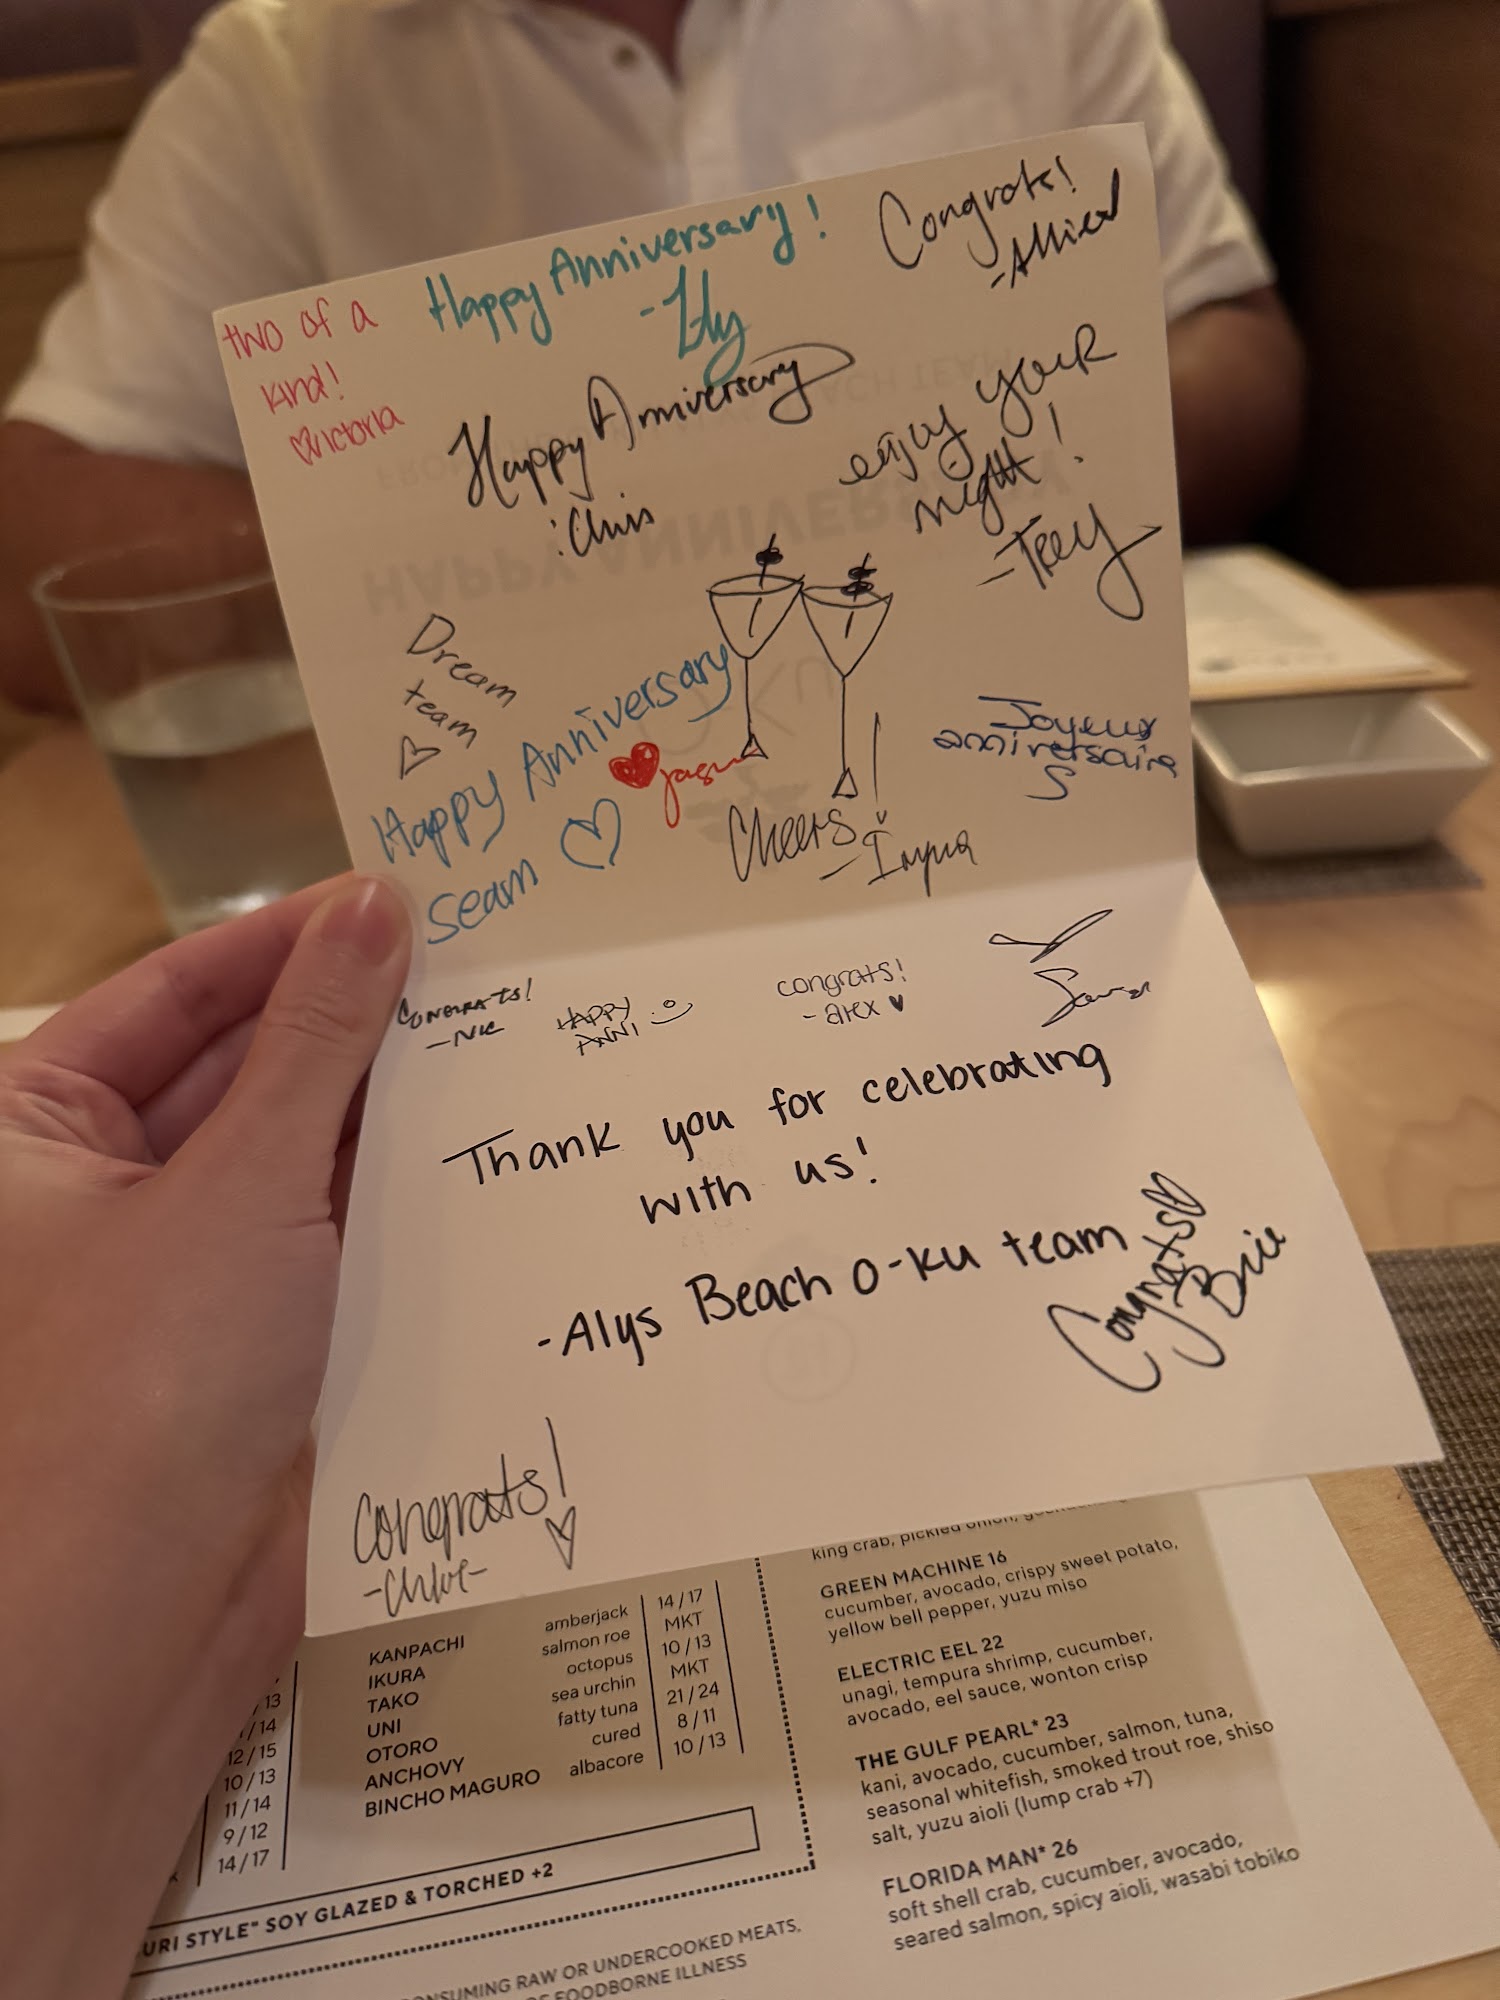 two of a
kind!
Victoria
Happy Anniversary!
Congrats!
Happy Anniversary
Chris
enjoy your
night!
-Trey
Dream
team
Happy Anniversary
Sean
Joyeux
anniversaire
S
Cheers!
- Iryna
CONGRATS!
HAPPY
ANNI
congrats!
- alex
Thank you for celebrating
with us!
-Alys Beach O-Ku team
Congrats
Congrats!
-Chloe-
HAPPY ANNIVERSARY
KANPACHI amberjack 14 / 17
IKURA salmon roe MKT
TAKO octopus 10 / 13
UNI sea urchin MKT
OTORO fatty tuna 21 / 24
ANCHOVY cured 8 / 11
BINCHO MAGURO albacore 10 / 13
/ 13
/ 14
12 / 15
10 / 13
11 / 14
9 / 12
14 / 17
STYLE" SOY GLAZED & TORCHED +2
RAW OR UNDERCOOKED MEATS,
FOODBORNE ILLNESS
king crab, pickled onion,
GREEN MACHINE 16
cucumber, avocado, crispy sweet potato,
yellow bell pepper, yuzu miso
ELECTRIC EEL 22
unagi, tempura shrimp, cucumber,
avocado, eel sauce, wonton crisp
THE GULF PEARL* 23
kani, avocado, cucumber, salmon, tuna,
seasonal whitefish, smoked trout roe, shiso
salt, yuzu aioli (lump crab +7)
FLORIDA MAN* 26
soft shell crab, cucumber, avocado,
seared salmon, spicy aioli, wasabi tobiko